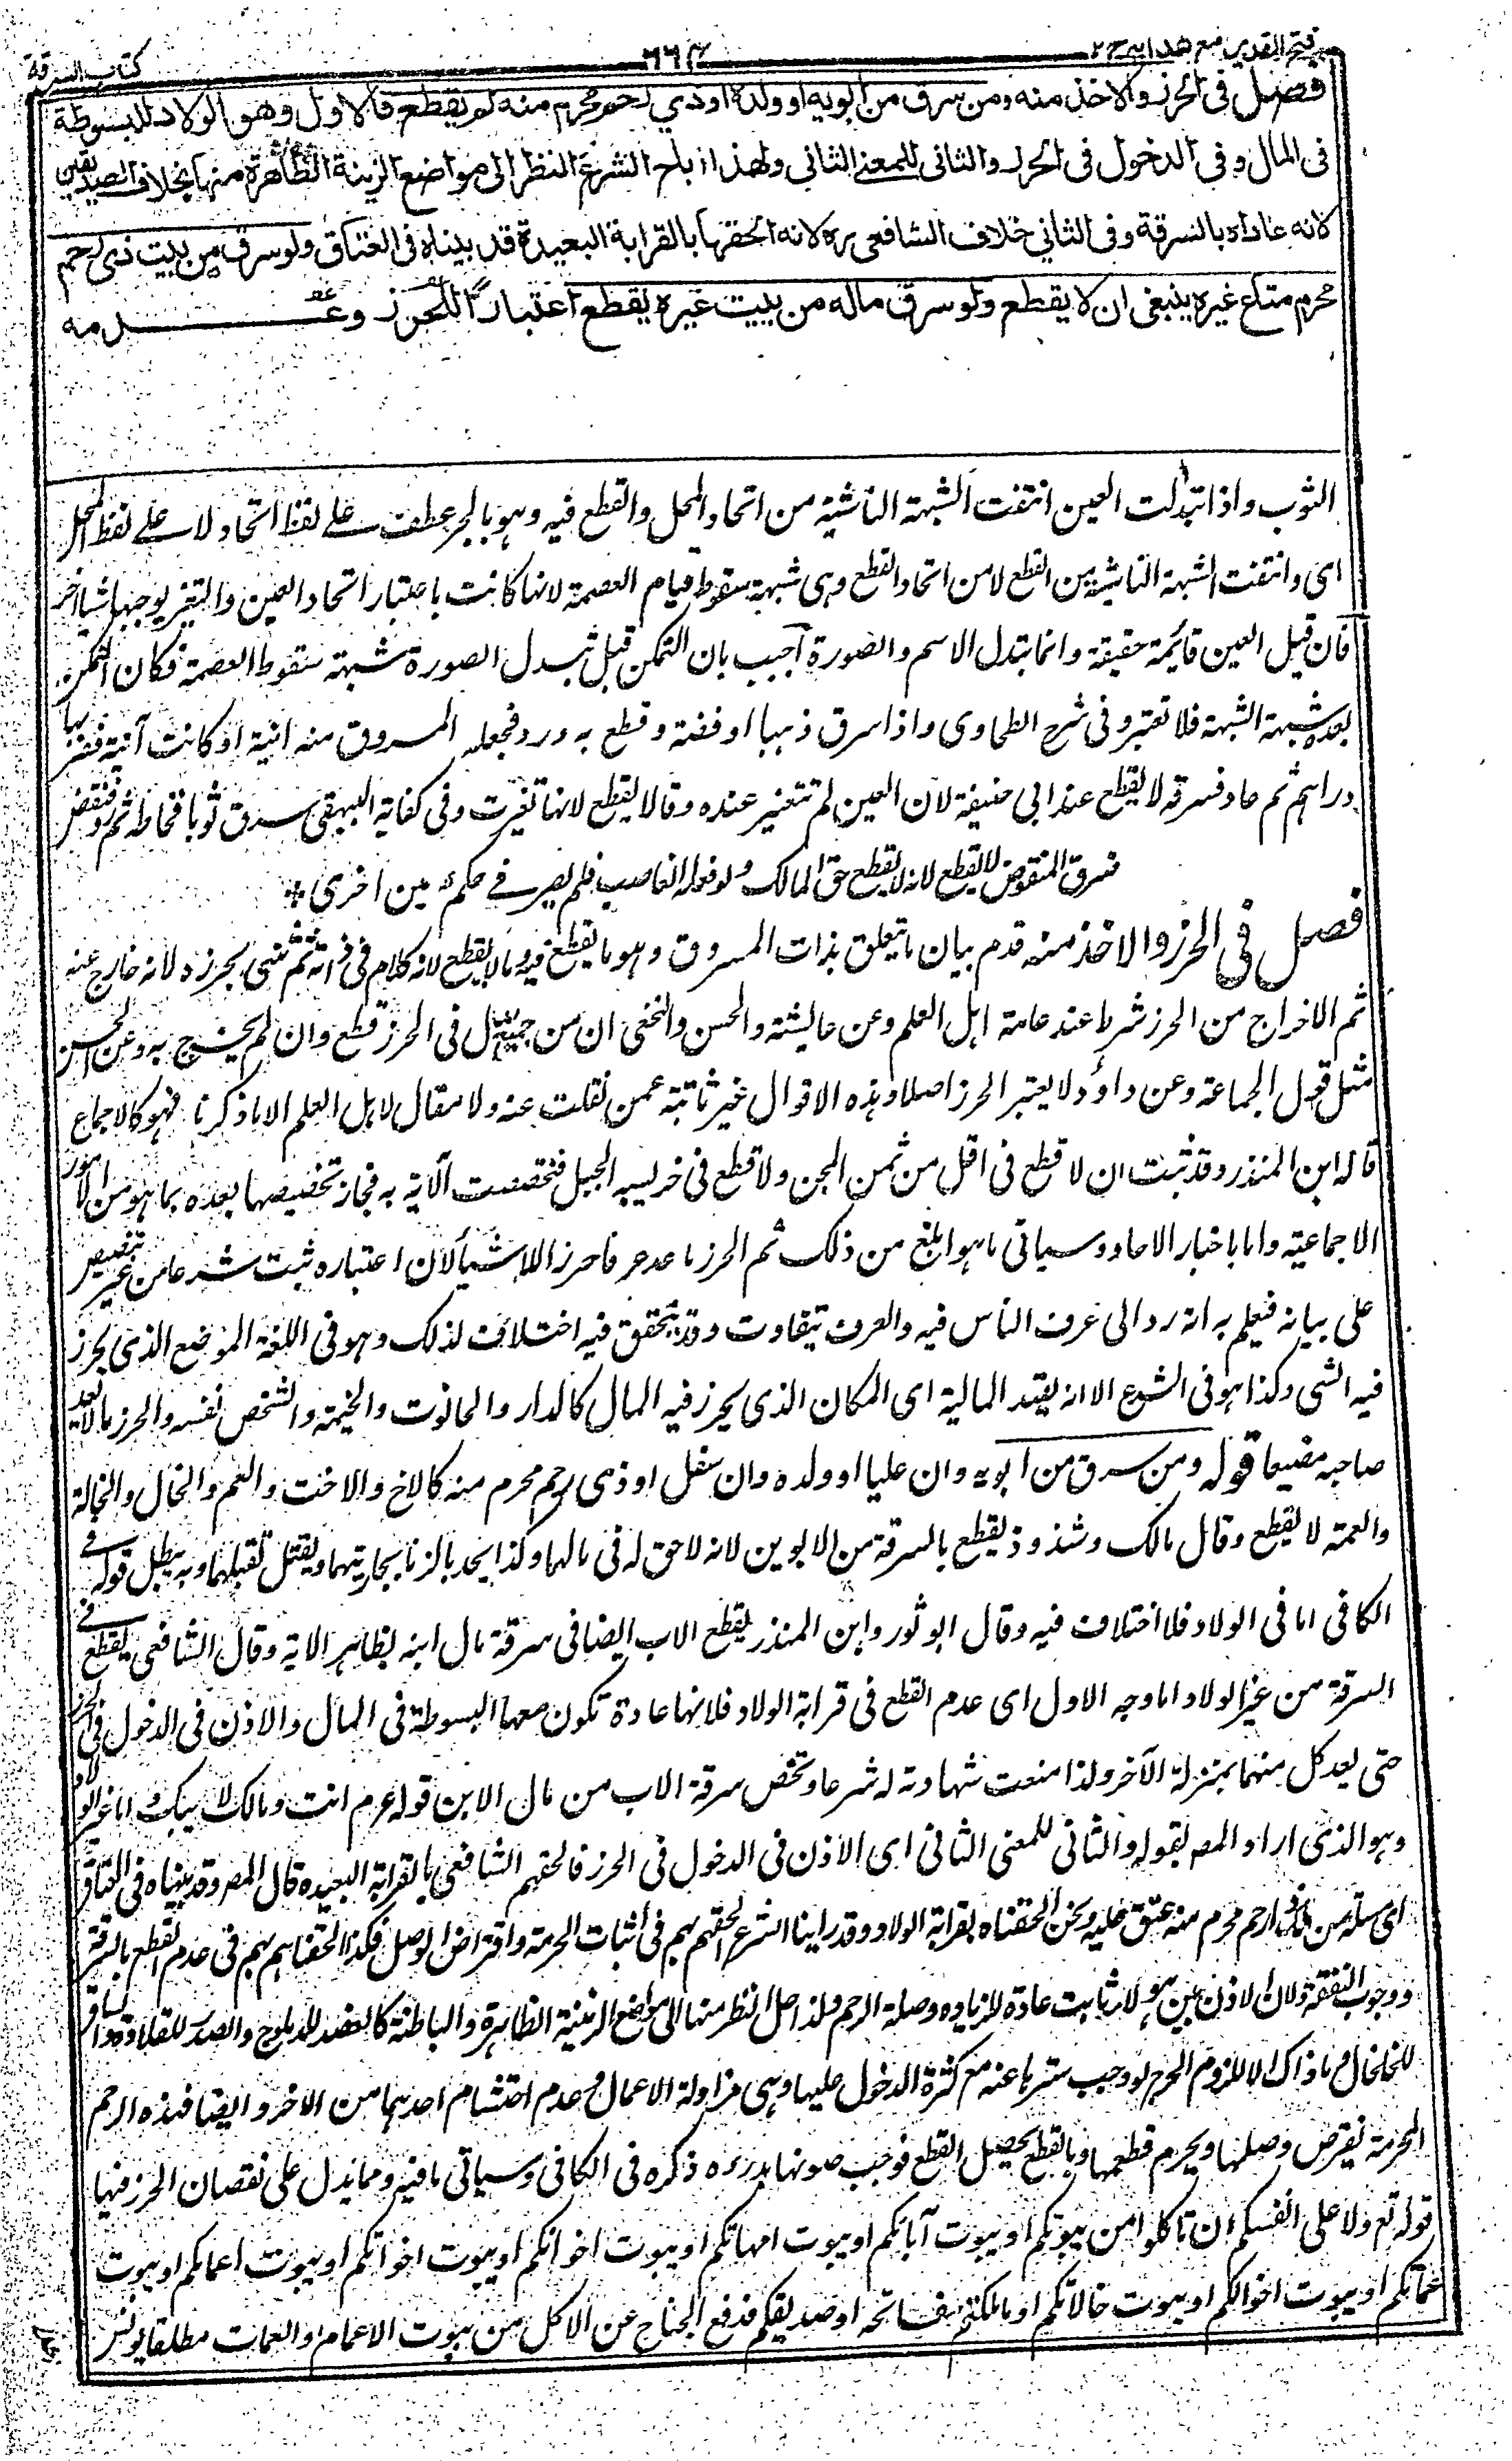 فتح القدیر مع هدایه ج ٢
٦٦٣
کتاب السرقة
فصل فی الحرز والاخذ منه ومن سرق من ابویه او ولده او ذی رحم محرم منه لم یقطع فالاول وهو الولاد للبسوطة
فی المال وفی الدخول فی الحرز والثانی للمعنی الثانی ولهذا اباح الشرع النظر الی مواضع الزینة الظاهرة منها بخلاف الصدیقین
لانه عاداه بالسرقة وفی الثانی خلاف الشافعی ره لانه الحقها بالقرابة البعیدة قد بیناه فی العتاق ولو سرق من بیت ذی رحم
محرم متاع غیره ینبغی ان لا یقطع ولو سرق ماله من بیت غیره یقطع اعتبارا للحرز وعدمه
الثوب واذا تبدلت العین انتفت الشبهة الناشیة من اتحاد المحل والقطع فیه وهو بالجر عطف علی لفظ اتحاد لا علی لفظ المحل
ای وانتفت الشبهة الناشیة من القطع لا من اتحاد القطع وهی شبهة سقوط قیام العصمة لانها کانت باعتبار اتحاد العین والتغیر یوجبها شیئا اخر
فان قیل العین قائمة حقیقة وانما تبدل الاسم والصورة اجیب بان التمکن قبل تبدل الصورة شبهة سقوط العصمة فکان التمکن
بعده شبهة الشبهة فلا تعتبر وفی شرح الطحاوی واذا سرق ذهبا او فضة وقطع به ورد فجعله المسروق منه انیة او کانت آنیة فضربها
دراهم ثم عاد فسرقه لا یقطع عند ابی حنیفة لان العین لم تتغیر عنده وقالا یقطع لانها تغیرت وفی کفایة البیهقی سرق ثوبا فخاطه ثم رد فنقض
فسرق المنقوض لا یقطع لانه لا یقطع حق المالک ولو فعله الغاصب فلم یصر فی حکم عین اخری
فصل فی الحرز والاخذ منه قدم بیان ما یتعلق بذات المسروق وهو ما یقطع فیه وما لا یقطع لانه کلام فی ذاته ثم ثنی بحرزه لانه خارج عنه
ثم الاخراج من الحرز شرط عند عامة اهل العلم وعن عایشة والحسن والنخعی ان من جمع المال فی الحرز قطع وان لم یخرج به وعن الحسن
مثل قول الجماعة وعن داؤد لا یعتبر الحرز اصلا وهذه الاقوال غیر ثابتة عمن نقلت عنه ولا مقال لاهل العلم الا ما ذکرنا فهو کالاجماع
قاله ابن المنذر وقد ثبت ان لا قطع فی اقل من ثمن المجن ولا قطع فی حریسة الجبل فتخصصت الآیة به فجاز تخصیصها بعده بما هو من الامور
الاجماعیة واما باخبار الاحاد وسیاتی ما هو ابلغ من ذلک ثم الحرز ما عد حرزا للاشیاء لان اعتباره ثبت شرعا من غیر تنصیص
علی بیانه فیعلم به انه رد الی عرف الناس فیه والعرف یتفاوت وقد یتحقق فیه اختلاف لذلک وهو فی اللغة الموضع الذی یحرز
فیه الشی وکذا هو فی الشرع الا انه بقید المالیة ای المکان الذی یحرز فیه المال کالدار والحانوت والخیمة والشخص نفسه والحرز ما لا یعد
صاحبه مضیعا قوله ومن سرق من ابویه وان علیا او ولده وان سفل او ذی رحم محرم منه کالاخ والاخت والعم والخال والخالة
والعمة لا یقطع وقال مالک وشذوذ یقطع بالسرقة من الابوین لانه لا حق له فی مالهما وکذا یحد بالزنا بجاریتهما ویقتل بقتلهما وبه یبطل قوله فی
الکافی اما فی الولاد فلا اختلاف فیه وقال ابو ثور وابن المنذر یقطع الاب ایضا فی سرقة مال ابنه بظاهر الایة وقال الشافعی یقطع فی
السرقة من غیر الولاد اما وجه الاول ای عدم القطع فی قرابة الولاد فلانها عادة تکون معها البسوطة فی المال والاذن فی الدخول فی الحرز
حتی یعد کل منهما بمنزلة الآخر ولذا منعت شهادته له شرعا وتخص سرقة الاب من مال الابن قوله عم انت ومالک لابیک واما غیر الولاد
وهو الذی اراد المص بقوله والثانی للمعنی الثانی ای الاذن فی الدخول فی الحرز فالحقهم الشافعی بالقرابة البعیده قال المص وقد بیناه فی العتاق
ای مسلة من ملک ذا رحم محرم منه عتق علیه ونحن الحقناه بقرابة الولاد وقد راینا الشرع الحقهم بهم فی اثبات الحرمة وافتراض الوصل فکذا الحقناهم بهم فی عدم القطع بالسرقة
ووجوب النفقة ولان الاذن بین هولاء ثابت عادة للزیاده وصلة الرحم ولذا حل النظر منها الی مواضع الزینة الظاهرة والباطنة کالعضد للدملوج والصدر للقلادة والساق
للخلخال وما ذاک الا للزوم الحرج لو وجب سترها عنه مع کثرة الدخول علیها وهی مزاولة الاعمال وعدم احتشام احدهما من الاخر وایضا فهذه الرحم
المحرمة یفترض وصلها ویحرم قطعها وبالقطع یحصل القطع فوجب صونها بدرءه ذکره فی الکافی وسیاتی ما فیه ومما یدل علی نقصان الحرز فیها
قوله تع ولا علی انفسکم ان تاکلوا من بیوتکم او بیوت آبائکم او بیوت امهاتکم او بیوت اخوانکم او بیوت اخواتکم او بیوت اعمامکم او بیوت
عماتکم او بیوت اخوالکم او بیوت خالاتکم او ما ملکتم مفاتحه او صدیقکم فدفع الجناح عن الاکل من بیوت الاعمام والعمات مطلقا یونس